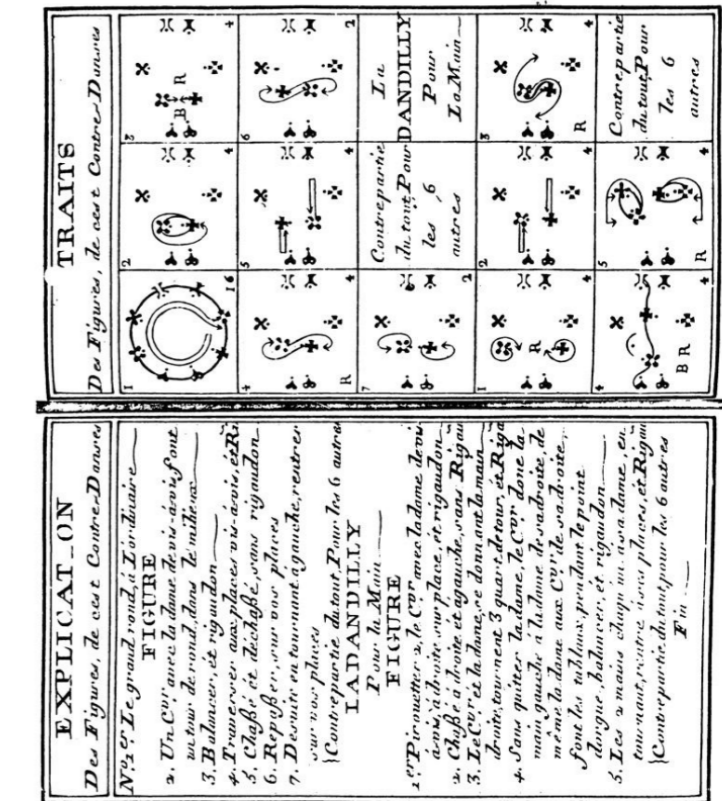 EXPLICAT_ON
Des Figures, de cest Contre-Danses
N.º 1.er Le grand rond, à L'ordinaire
FIGURE
2. Un C.vr avec la dame de vis-à-vis, font
un tour de rond, dans le milieux
3. Balancer, et rigaudon
4. Traverser aux places vis-à-vis, et Ri
5. Chaßé et déchaßé, sans rigaudon
6. Repaßer, sur vos places
7. Desruir en tournant à gauche, rentrer
sur vos places
{Contrepartie du tout, Pour les 6 autres
LADANDILLY
Pour la Main
FIGURE
1.er Pirouetter 2, le C.vr avec la dame de vis
à vis, à droite, sur place, et rigaudon
2. Chaßé à droite et à gauche, sans Rigau
3. Le C.vr et la dame, se donnant la main
droite, tournent 3 quart de tour, et Riga
4. Sans quitter la dame, le C.vr done la
main gauche à la dame de sa droite, de
même la dame aux C.vr de sa droite,
font les tableaux, pendant le point
dorgue, balancer, et rigaudon
5. Les 2 mains chaqu'un a sa dame, en
tournant, rentre a ses places, et Rigau
{Contrepartie, du tout pour les 6 autres
Fin
TRAITS
Des Figures, de cest Contre-Danses
1
16
2
4
3
B
R
4
4
R
4
5
4
6
2
7
2
Contrepartie
du tout, Pour
les 6
autres
La
DANDILLY
Pour
La Main
1
R
4
2
4
3
R
4
4
B R
4
5
R
4
Contrepartie
du tout, Pour
les 6
autres